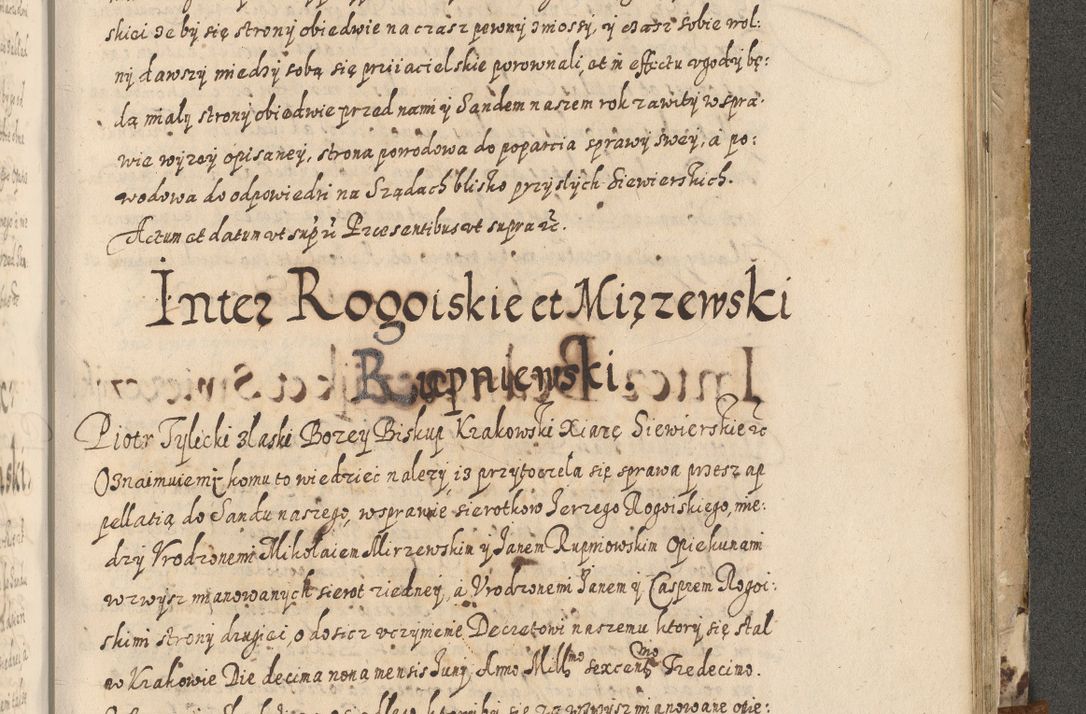 skiei ze by się strony obiedwie na czasz pewny zniossy, y czasz sobie wol:
ny dawszy miedzy sobą się prziiacielskie porownali, et in effectu zgody bę:
dą mialy strony obiedwie przed nami y Sandem naszem rok zawity w spra:
wie wyzey opisaney, strona powodowa do poparcia sprawy swey, a po:
wodowa do odpowiedzi na Sządach blisko przyslych Siewierskich.
Actum et datum ut supr. Praesentibus ut supra etc.
Inter Rogoiskie et Mirzewski
Rupniewski.
Piotr Tylecki z laski Bozey Biskup Krakowski Xiązę Siewierskie etc
Oznaimuiemy komu to wiedziec nalezy, iz przytoczela się sprawa przesz ap
pellatią do Sandu naszego, w sprawie sierotkow Jerzego Rogoiskiego, mie:
dzy Urodzonemi Mikolaiem Mirzewskim y Janem Rupniowskim Opiekunami
wzwysz mianowanych sierot z iedney, a Urodzonemi Janem y Casprem Rogoi:
skimi strony drugiei, o dosicz uczynienie Decretowi naszemu ktory się stal
w Krakowie Die decima nona mensis Juny Anno Mill.mo sexcent.mo Tredecimo.